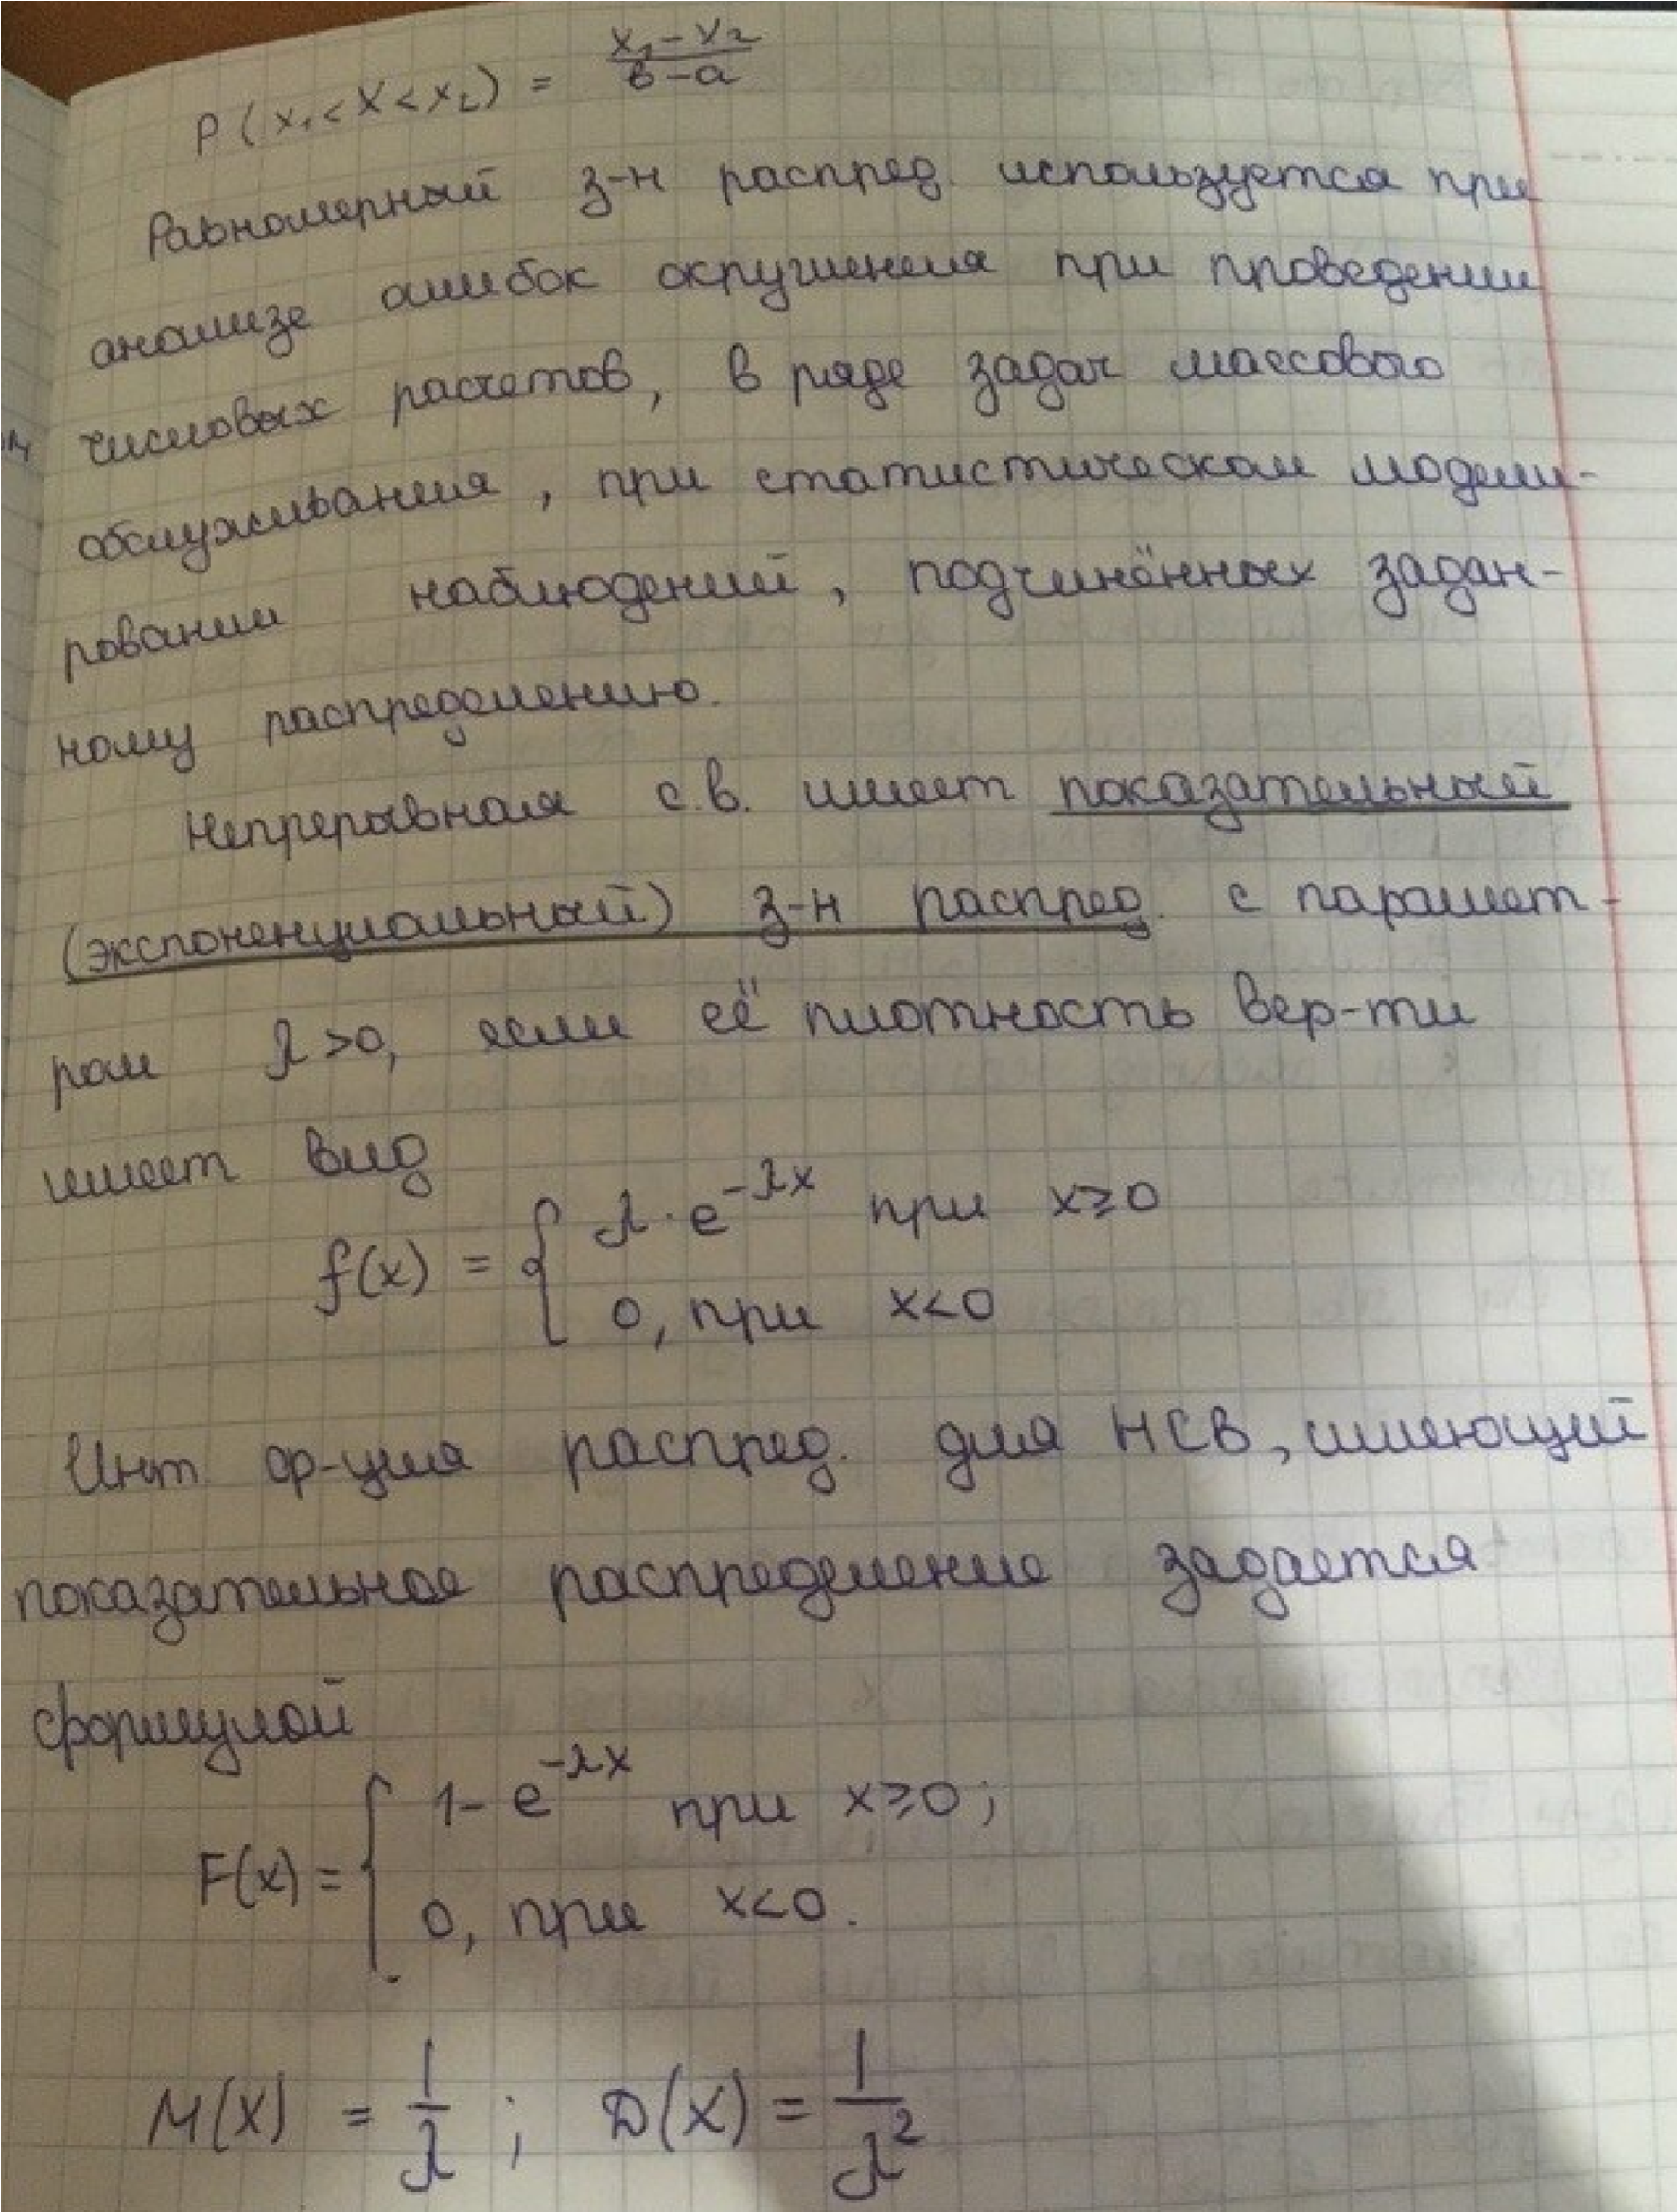 P(x₁<X<x₂) = (x₁-x₂)/(в-a)
Равномерный з-н распред. используется при
анализе ошибок округления при проведении
числовых расчетов, в ряде задач массового
обслуживания, при статистическом модели-
ровании наблюдений, подчинённых задан-
ному распределению.
Непрерывная с.в. имеет показательный
(экспоненциальный) з-н распред. с парамет-
ром λ>0, если её плотность вер-ти
имеет вид
f(x) = { λ·e^(-λx) при x≥0
0, при x<0
Инт. ф-ция распред. для НСВ, имеющий
показательное распределение задается
формулой
F(x) = { 1-e^(-λx) при x≥0;
0, при x<0.
M(X) = 1/λ ; D(X) = 1/λ²